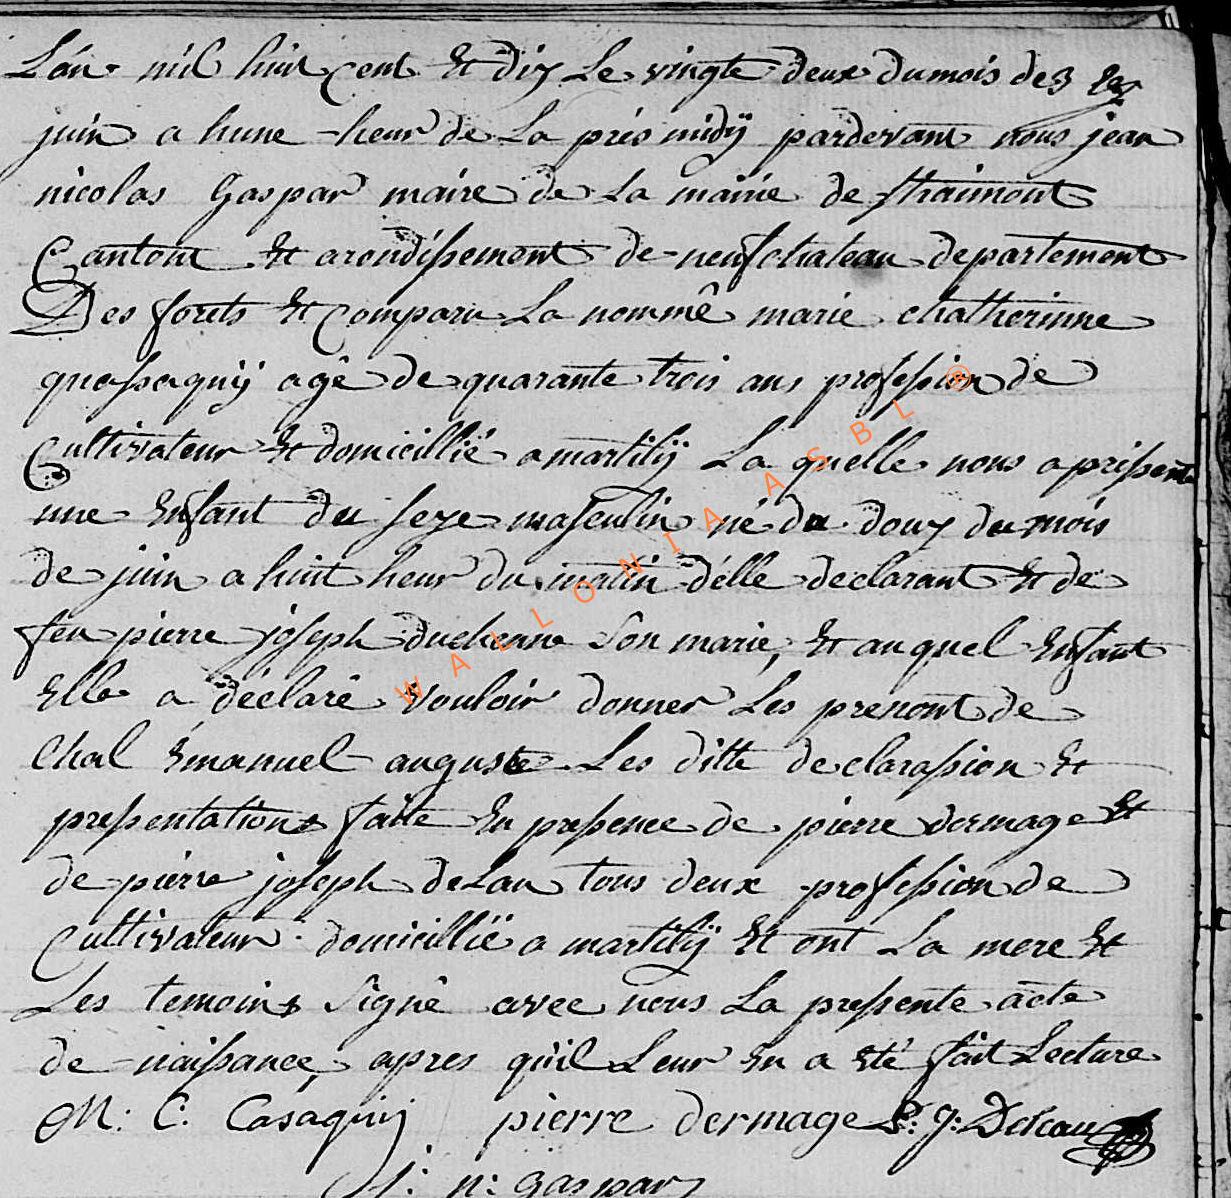 L'an mil huit cent Et dix Le vingte deux du mois de
juin a hune heur de La prés midÿ pardevant nous jean
nicolas Gaspar maire de La mairie de straimont
Cantont Et arondissement de neufchateau departement
Des forets Et comparu La nommê marie chatherinne
quassaquij agê de quarante trois ans profession de
Cultivateur Et domicillié a martilij La quelle nous a prissenté
une Enfant du sexe masculin né du doux du mois
de juin a huit heur du matin d'élle declarant Et de
feu pierre joseph duchenne son marie, Et auquel Enfant
Elle a déclarê vouloir donner Les prenont de
Chal Emanuel auguste Les ditte declarassion Et
pressentations faite En pressence de pierre dermage Et
de pierre joseph deLau tous deux profession de
Cultivateur domicillié a martilÿ Et ont La mere Et
Les temoins signê avec nous La pressente acte
de naissance, apres qu'il Leur En a Eté fait Lecture
M: C: Casaquij pierre dermage P: J: Deleau
J: n: gaspar
WALLONIA ASBL ®